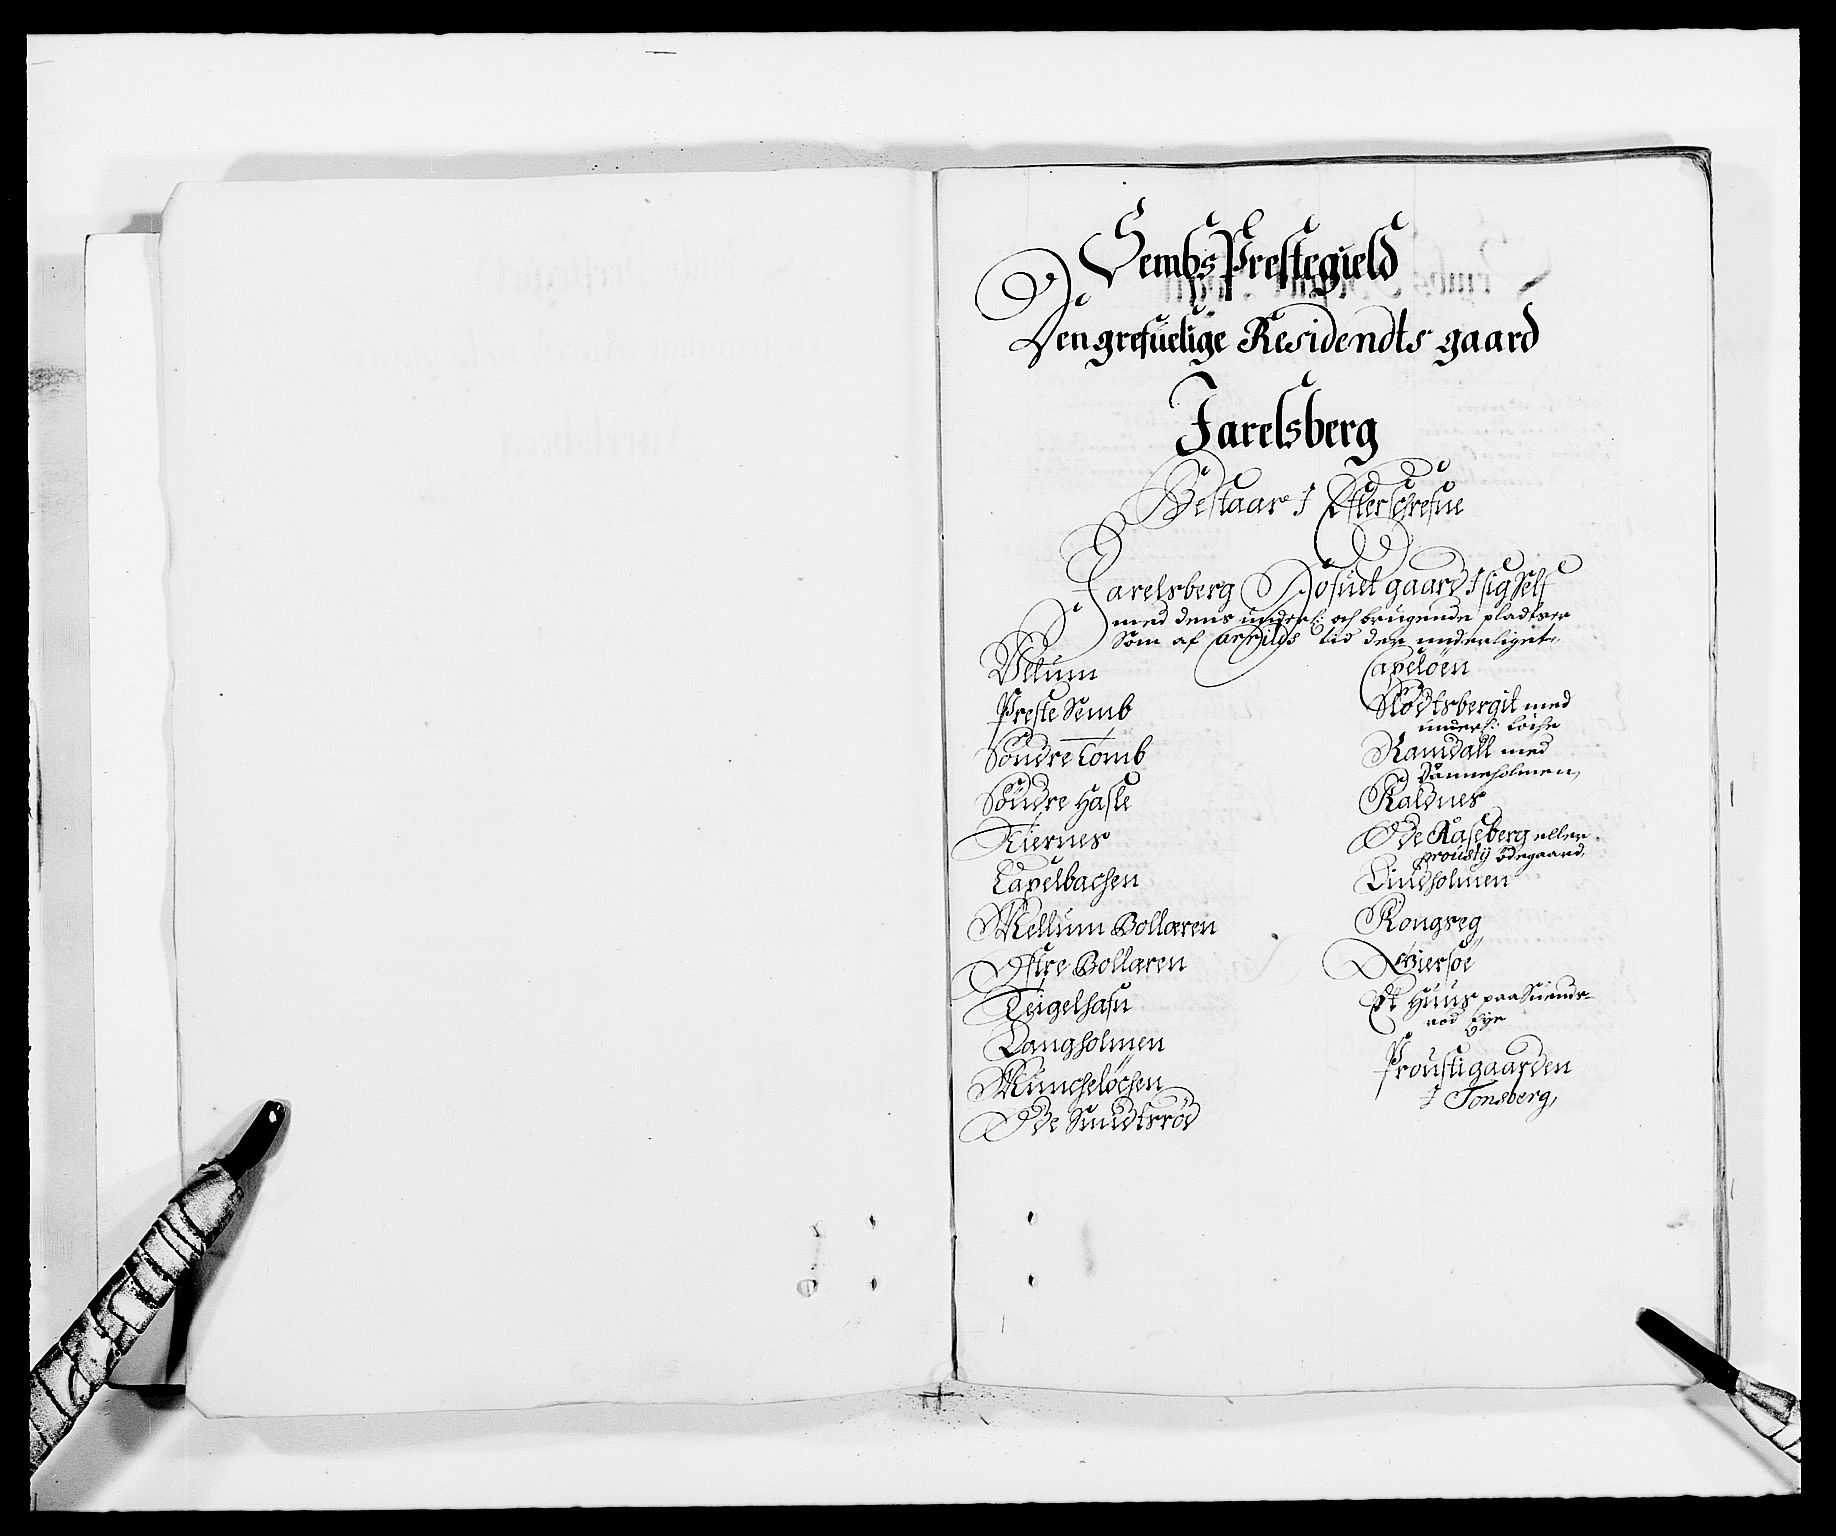 Sembs Prestegield
Den grefuelige Residendts gaard
Jarelsberg
Bestaar J Efterschrefne
Jarelsberg Hofuet gaard J sig Self
med dens underl: och brugende pladtzer
Som af arrilds tid der underliget,
Velum
Preste Semb
Söndre Tomb
Söndre Hasle
Kiernes
Capelbachen
Mellum Bollæren
Östre Bollæren
Teigelhafn
Langholmen
Muncheløchen
Øde Sundtsröd
Capelöen
Slodtsbergit med
underl: Löche
Ramdall med
Kaldnes
Øde Raseberg eller
prousty ödegaard,
Lindholmen
Kongseg
Et Huus paa
röd Eye
Proustigaarden
J Tonsberg,